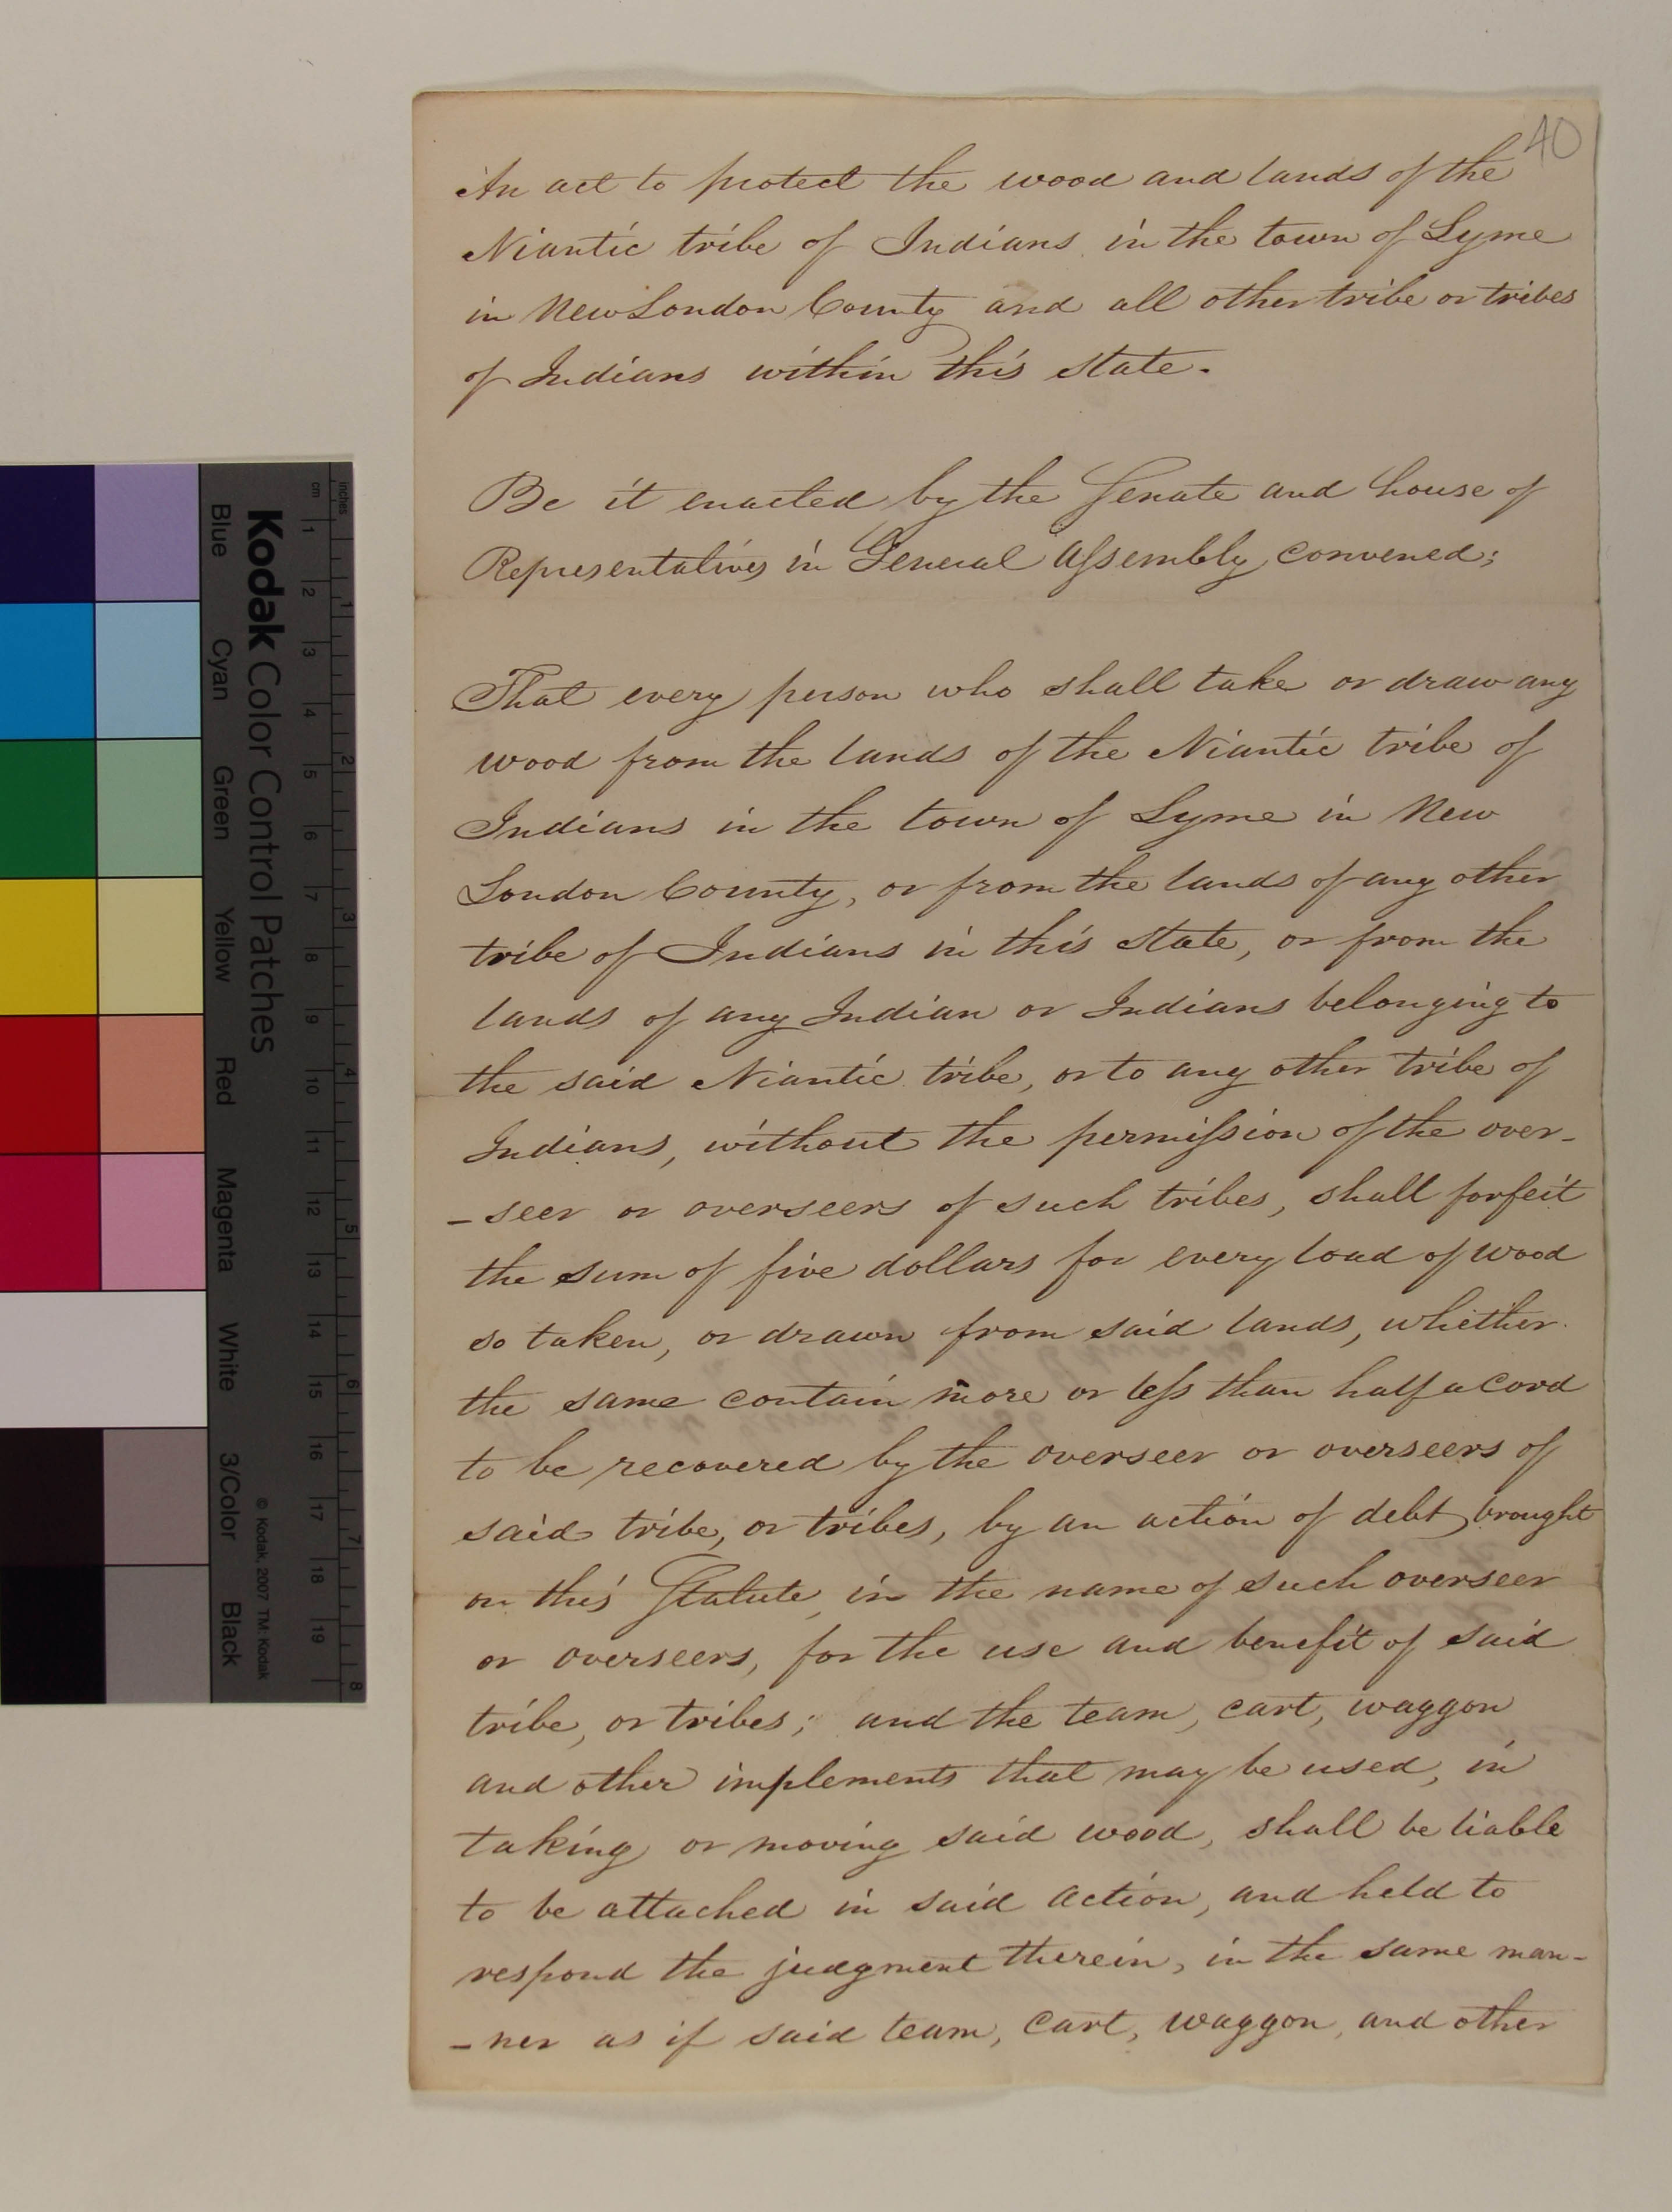 40
An act to protect the wood and lands of the
Niantic tribe of Indians in the town of Lyme
in New London County and all other tribe or tribes
of Indians within this state.
Be it enacted by the Senate and house of
Representatives in General Assembly convened;
That every person who shall take or draw any
wood from the lands of the Niantic tribe of
Indians in the town of Lyme in New
London County, or from the lands of any other
tribe of Indians in this state, or from the
lands of any Indian or Indians belonging to
the said Niantic tribe, or to any other tribe of
Indians, without the permission of the over-
-seer or overseers of such tribes, shall forfeit
the sum of five dollars for every load of wood
so taken, or drawn from said lands, whether
the same contain more or less than half a cord
to be recovered by the overseer or overseers of
said tribe, or tribes, by an action of debt, brought
on this Statute, in the name of such overseer
or overseers, for the use and benefit of said
tribe, or tribes; and the team, cart, waggon
and other implements that may be used, in
taking or moving said wood, shall be liable
to be attached in said action, and held to
respond the judgment therein, in the same man-
-ner as if said team, cart, waggon, and other
inches
cm 1 2 3 4 5 6 7 8 9 10 11 12 13 14 15 16 17 18 19
1 2 3 4 5 6 7 8
Kodak Color Control Patches
© Kodak, 2007 TM: Kodak
Blue Cyan Green Yellow Red Magenta White 3/Color Black